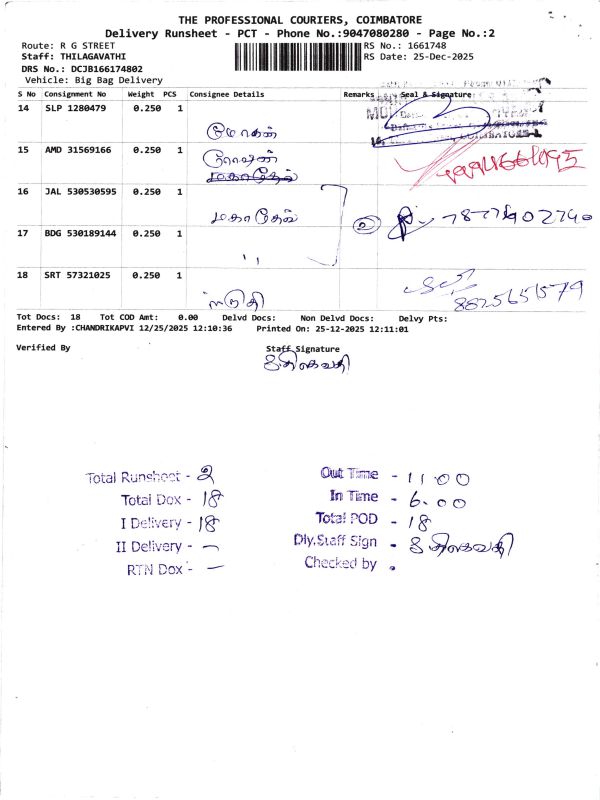 THE PROFESSIONAL COURIERS, COIMBATORE
Delivery Runsheet - PCT - Phone No.:9047080280 - Page No.:2
Route: R G STREET RS No.: 1661748
Staff: THILAGAVATHI RS Date: 25-Dec-2025
DRS No.: DCJB166174802
Vehicle: Big Bag Delivery
S No Consignment No Weight PCS Consignee Details Remarks Seal & Signature
14 SLP 1280479 0.250 1
மோகன்
15 AMD 31569166 0.250 1
16 JAL 530530595 0.250 1
மகாதேவ்
17 BDG 530189144 0.250 1
18 SRT 57321025 0.250 1
8825651579
Tot Docs: 18 Tot COD Amt: 0.00 Delvd Docs: Non Delvd Docs: Delvy Pts:
Entered By :CHANDRIKAPVI 12/25/2025 12:10:36 Printed On: 25-12-2025 12:11:01
Verified By Staff Signature
திலகவதி
Total Runsheet - 2 Out Time - 11.00
Total Dox - 18 In Time - 6.00
I Delivery - 18 Total POD - 18
II Delivery - Dly.Staff Sign - திலகவதி
RTN Dox - Checked by